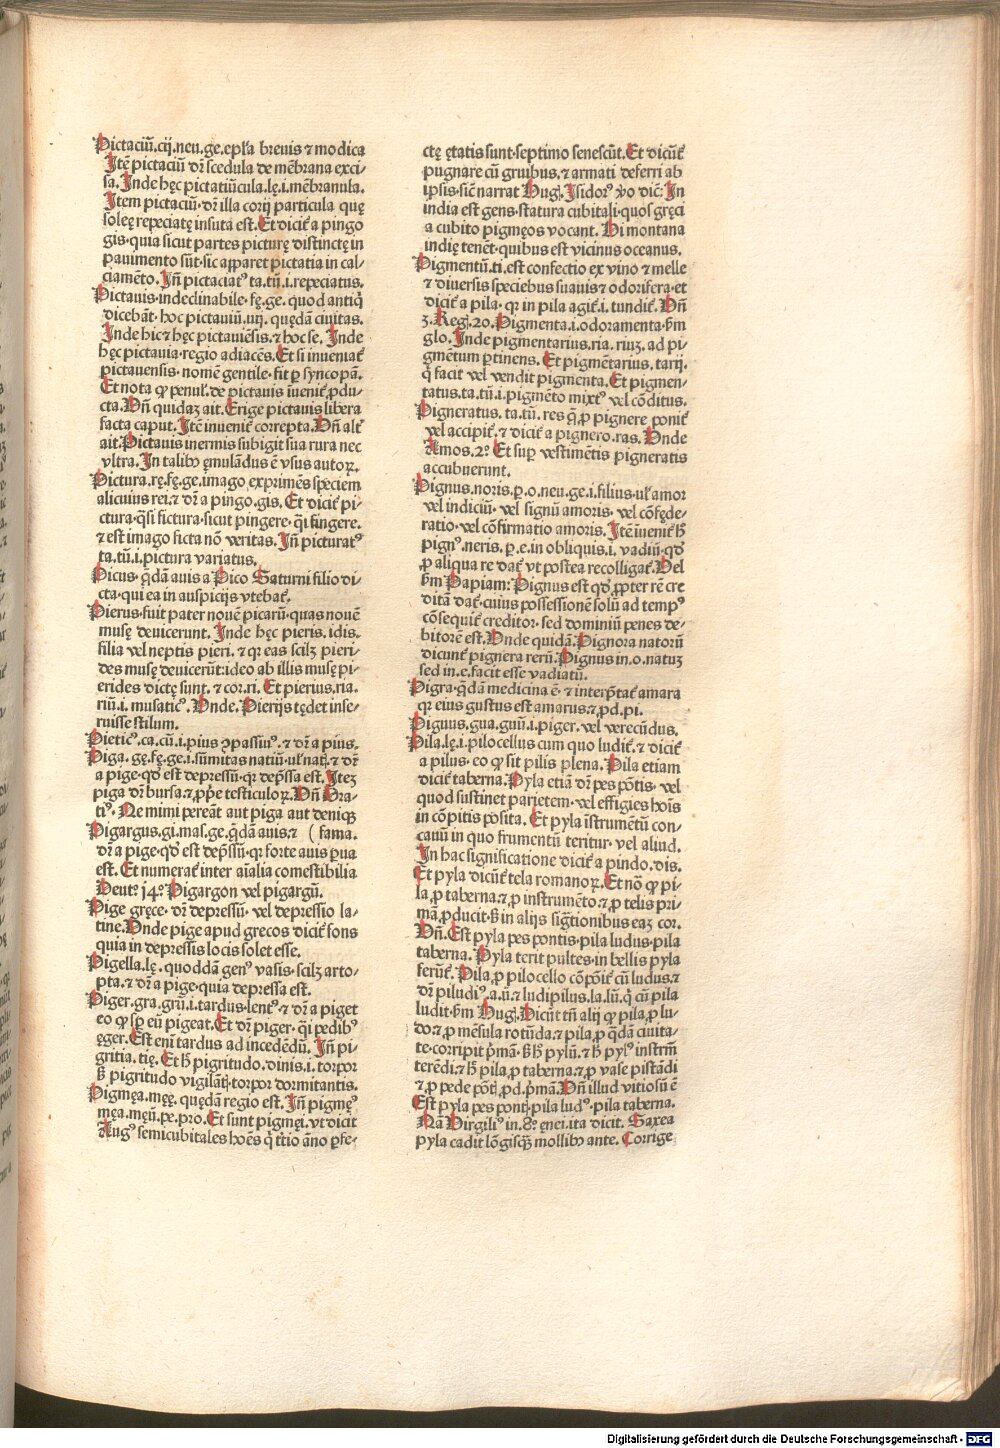 Pictaciū.cij.neu.ge.epl'a breuis ⁊ modica
Itē pictaciū dr̄ scedula de mēbrana exci-
sa. Inde hęc pictatiūcula.lę.i.mēbranula.
Item pictaciū.dr̄ illa corij particula quę
soleę repeciatę insuta est. Et dicit̄ a pingo
gis.quia sicut partes picturę distinctę in
pauimento sūt.sic apparet pictatia in cal-
ciamēto. Iñ pictaciatꝰ ta.tū.i.repeciatus.
Pictauis.indeclinabile.fę.ge. quod antiq̄
dicebāt. hoc pictauiū.uij. quędā ciuitas.
Inde hic ⁊ hęc pictauiēsis.⁊ hoc se. Inde
hęc pictauia.regio adiacēs. Et si inueniat̄
pictauensis. nomē gentile.fit ꝑ syncopā.
Et nota ꝙ penul'. de pictauis īuenit̄ ꝓdu-
cta. Vñ quidaꝫ ait. Erige pictauis libera
facta caput. Itē inuenit̄ correpta. Vñ alt̄
ait. Pictauis inermis subigit sua rura nec
vltra. In talibꝰ ęmulādus ē vsus autoꝝ.
Pictura.rę.fę.ge.imago exprimēs speciem
alicuius rei.⁊ dr̄ a pingo.gis. Et dicit̄ pi-
ctura.q̄si fictura.sicut pingere.q̄i fingere.
⁊ est imago ficta nō veritas. Iñ picturatꝰ
ta.tū.i.pictura variatus.
Picus. q̄dā auis a Pico Saturni filio di
cta.qui ea in auspicijs vtebat̄.
Pierus.fuit pater nouē picarū.quas nouē
musę deuicerunt. Inde hęc pieris.idis.
filia vel neptis pieri. ⁊ qꝛ eas scilꝫ pieri-
des musę deuicerūt:ideo ab illis musę pi-
erides dictę sunt. ⁊ cor.ri. Et pierius.ria.
riū.i.musaticꝰ. Vnde. Pierijs tędet inse-
ruisse stilum.
Pieticꝰ.ca.cū.i.pius ꝯpassiuꝰ.⁊ dr̄ a pius.
Piga. gę.fę.ge.i.sūmitas natiū.ul' natiꝭ.⁊ dr̄
a pige.qd̄ est depressū.qꝛ dep̄ssa est. Iteꝫ
piga dr̄ bursa ⁊ ꝓp̄e testiculoꝝ. Vñ Ora-
tiꝰ. Ne mimi pereāt aut piga aut deniqꝫ
Pigargus.gi.mas.ge.q̄dā auis.⁊ (fama.
dr̄ a pige.qd̄ est dep̄ssū.qꝛ forte auis ꝑua
est. Et numerat̄ inter aīalia comestibilia
Deutꝰ 14ꝰ. Pigargon vel pigargū.
Pige gręce. dr̄ depressū. vel depressio la-
tine. Vnde pige apud grecos dicit̄ fons
quia in depressis locis solet esse.
Pigella.lę. quoddā genꝰ vasis. scilꝫ arto-
pta.⁊ dr̄ a pige.quia depressa est.
Piger.gra.grū.i.tardus.lentꝰ.⁊ dr̄ a piget
eo ꝙ sꝑ eū pigeat. Et dr̄ piger. q̄i pedibꝰ
ęger. Est enī tardus ad incedēdū. Iñ pi-
gritia.tię. Et h̄ pigritudo.dinis.i.torpor
s̄ꝫ pigritudo vigilātꝭ.torpor dormitantis.
Pigmęa.męę. quędā regio est. Iñ pigmęꝰ
męa.męū.pe.pro. Et sunt pigmęi.vt dicit
Augꝰ semicubitales hoēs q̄ tr̄tio āno ꝑfe-
ctę ętatis sunt.septimo senescūt. Et dicūt̄
pugnare cū gruibus.⁊ armati deferri ab
ipsis.sic̄ narrat Hug. Isidorꝰ vo dic̄: In
india est gens.statura cubitali.quos gręci
a cubito pigmęos vocant. Hi montana
indię tenēt.quibus est vicinus oceanus.
Pigmentū.ti.est confectio ex vino ⁊ melle
⁊ diuersis speciebus suauis ⁊ odorifera.et
dicit̄ a pila. qꝛ in pila agit̄.i.tundit̄. Vñ
3. Reg. 20. Pigmenta.i.odoramenta.s̄m
glo. Inde pigmentarius.ria.riuꝫ.ad pi-
gmētum ꝑtinens. Et pigmētarius.tarij.
q̄ facit vel vendit pigmenta. Et pigmen-
tatus.ta.tū.i.pigmēto mixtꝰ vel cōditus.
Pigneratus. ta.tū. res q̄ ꝓ pignere ponit̄
vel accipit̄. ⁊ dicit̄ a pignero.ras. Vnde
Amos. 2ꝰ. Et suꝑ vestimētis pigneratis
accubuerunt.
Pignus.noris.ꝑ.o.neu.ge.i.filius.ul' amor
vel indiciū. vel signū amoris. vel cōfęde-
ratio.vel cōfirmatio amoris. Itē īuenit̄ h̄
pignꝰ.neris. ꝑ.e.in obliquis.i. vadiū.qd̄
ꝓ aliqua re dat̄ vt postea recolligat̄. Vel
s̄m Papiam: Pignus est qd̄ ꝓpter rē cre
ditā dat̄.cuius possessionē solū ad tempꝰ
cōsequit̄ creditor. sed dominiū penes de-
bitorē est. Vnde quidā. Pignora natorū
dicunt̄ pignera rerū. Pignus in.o.natuꝫ
sed in.e.facit esse vadiatū.
Pigra.q̄dā medicina ē.⁊ interp̄tat̄ amara
qꝛ eius gustus est amarus.⁊ ꝓd.pi.
Piguus.gua.guū.i.piger. vel verecūdus.
Pila.lę.i.pilocellus cum quo ludit̄.⁊ dicit̄
a pilus. eo ꝙ sit pilis plena. Pila etiam
dicit̄ taberna. Pyla etiā dr̄ pes pōtis. vel
quod sustinet parietem. vel effigies hoīs
in cōpitis posita. Et pyla īstrumētū con-
cauū in quo frumentū teritur. vel aliud.
In hac significatione dicit̄ a pindo.dis.
Et pyla dicūt̄ tela romanoꝝ. Et nō ꝙ pi-
la.ꝓ taberna.⁊ ꝓ instrumēto.⁊ ꝓ telis pri-
mā ꝓducit.s̄ꝫ in alijs sigtionibus eaꝫ cor.
Vñ. Est pyla pes pontis.pila ludus.pila
taberna. Pyla terit pultes.in bellis pyla
ferūt̄. Pila.ꝓ pilocello cōponit̄ cū ludus.⁊
dr̄ piludiꝰ.a.ū.⁊ ludipilus.la.lū.q̄ cū pila
ludit.s̄m Hug. Dicūt tñ alij ꝙ pila.ꝓ lu-
do.⁊ ꝓ mēsula rotūda.⁊ pila.ꝓ q̄dā ciuita-
te.corripit p̄mā. S̄ꝫ h̄ pylū.⁊ h̄ pylꝰ instrm̄
terēdi.⁊ h̄ pila.ꝓ taberna.⁊ ꝓ vase pistādi
⁊ ꝓ pede pōtꝭ.ꝓd.p̄mā. Vñ illud vitiosū ē
Est pyla pes pontꝭ.pila ludꝰ.pila taberna.
Nā Virgiliꝰ in.8ꝰ. ęnei.ita dicit. Saxea
pyla cadit lōgisqꝫ mollibꝰ ante. Corrige
Digitalisierung gefördert durch die Deutsche Forschungsgemeinschaft - DFG